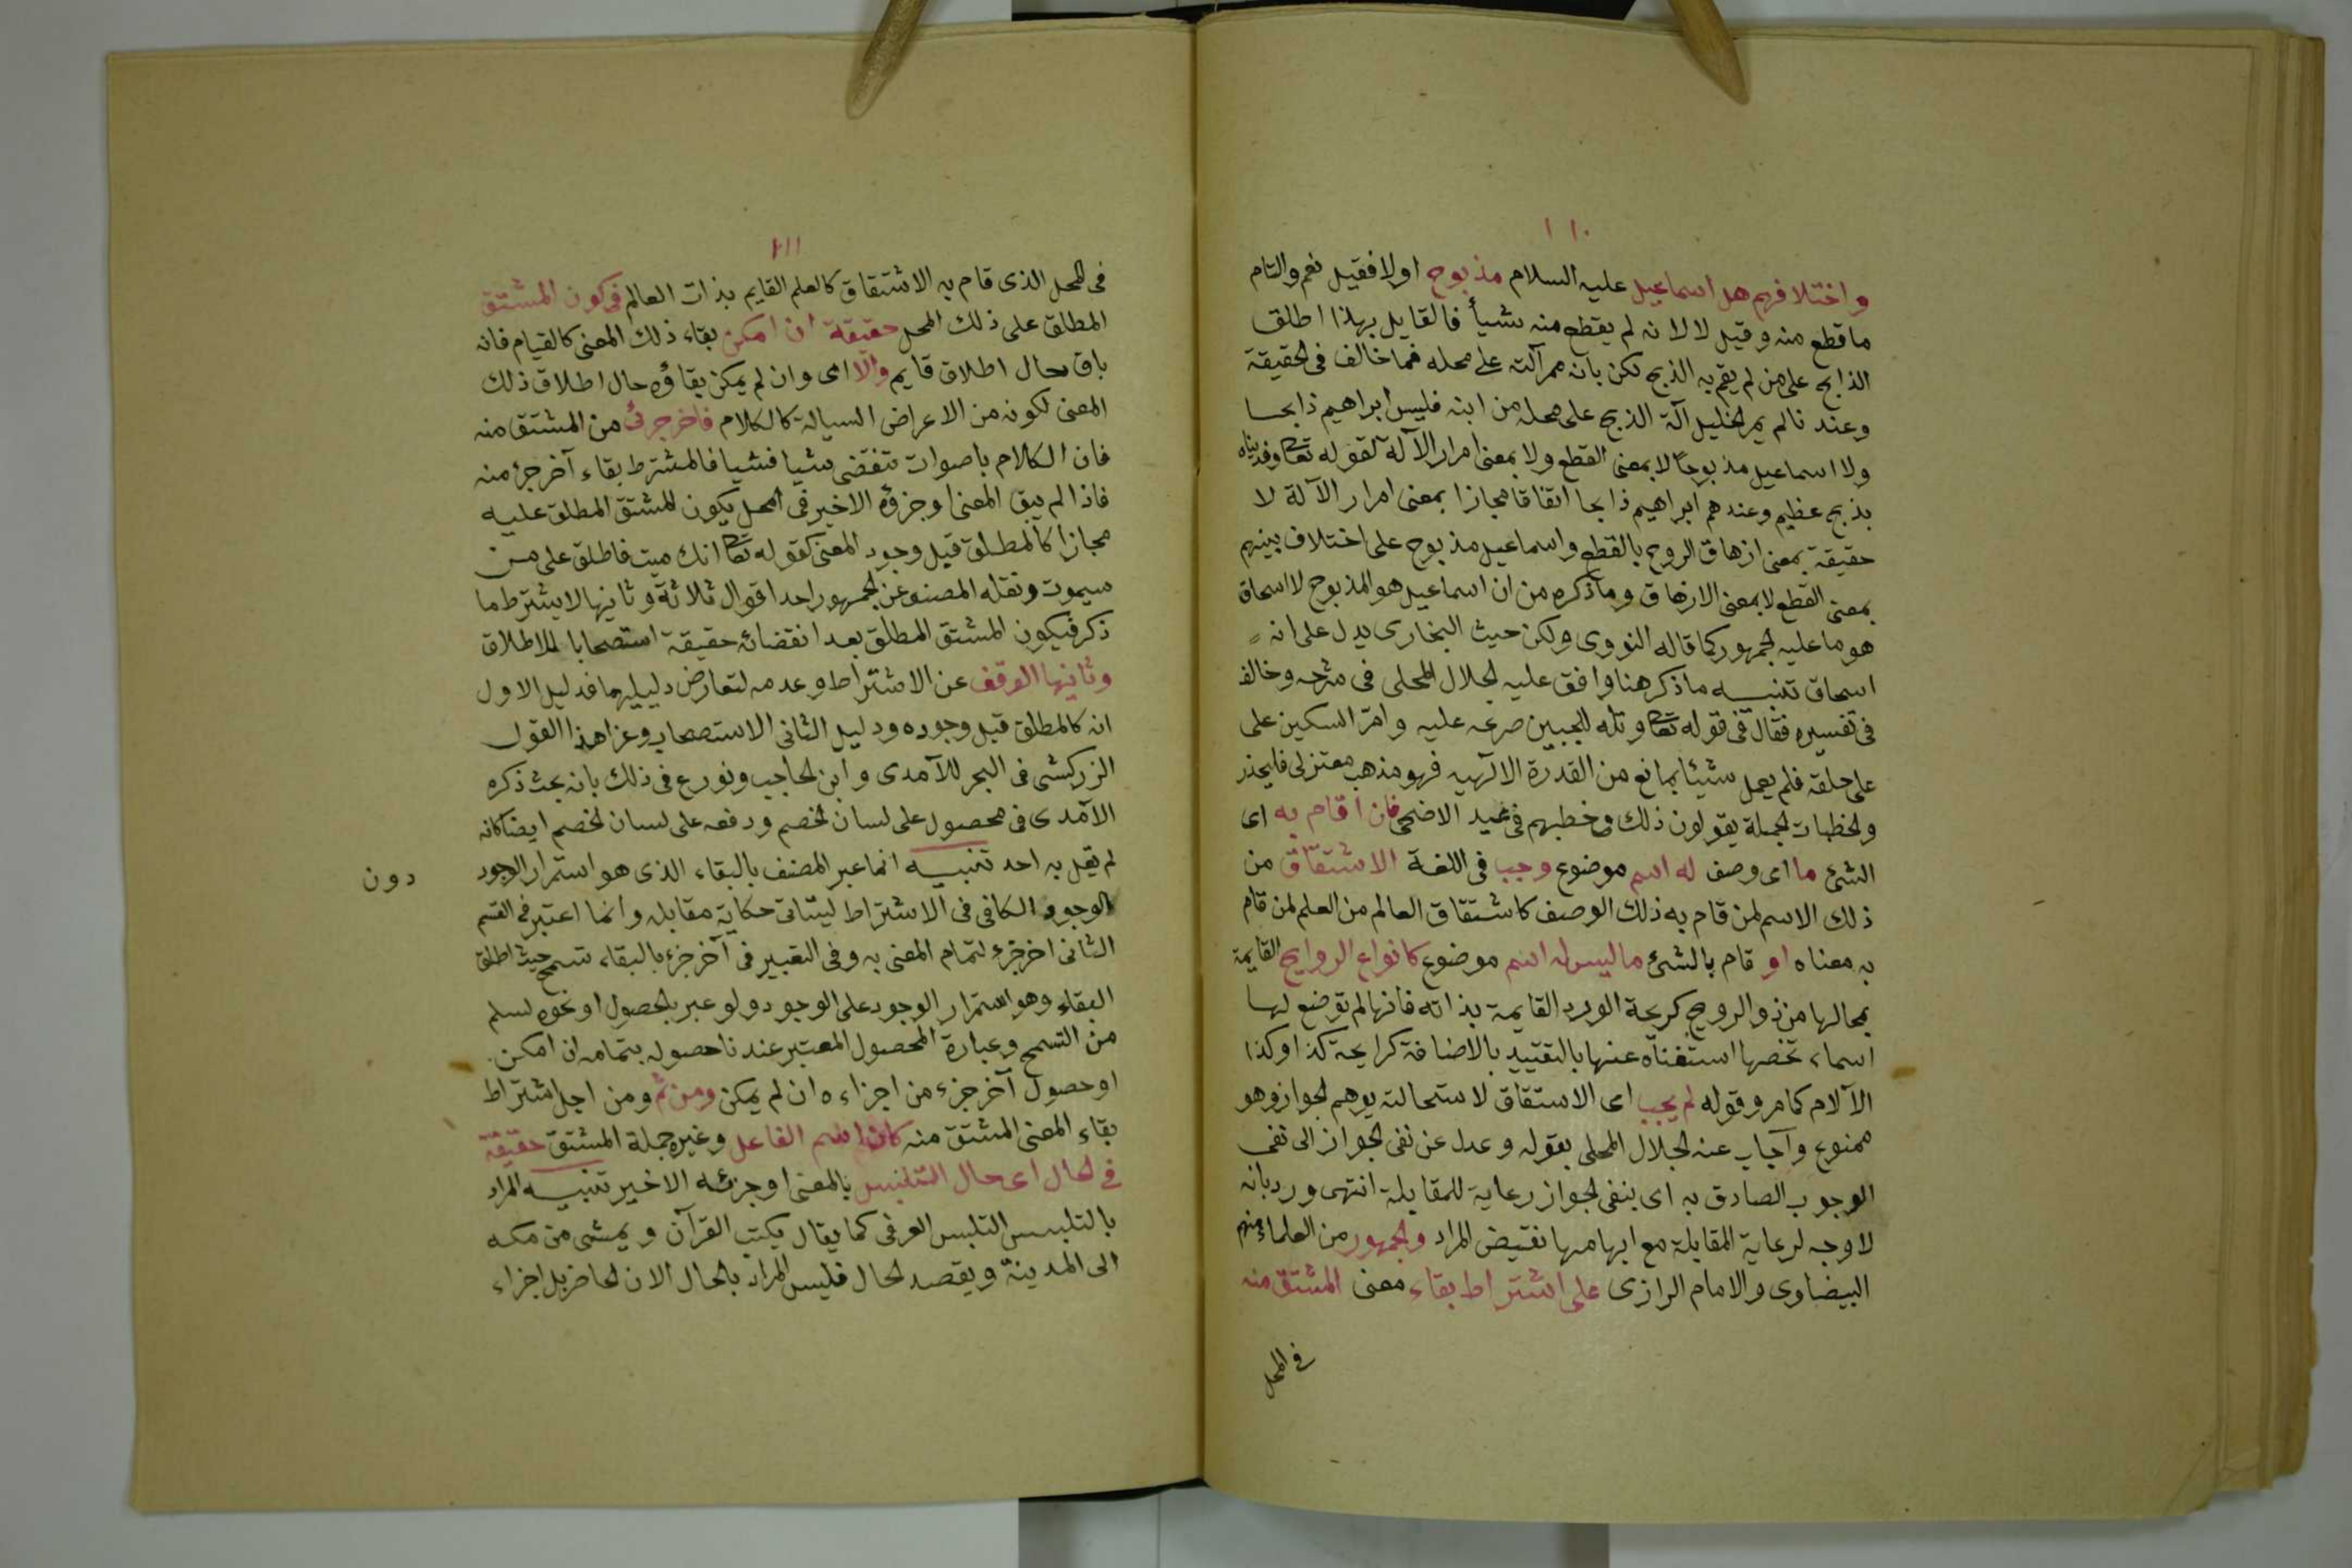 ١١٠
واختلافهم هل اسماعيل عليه السلام مذبوح اولا فقيل نعم والتام
ما قطع منه وقيل لا لانه لم يقطع منه شيأ فالقايل بهذا اطلق
الذابح على من لم يقم به الذبح لكن بانه ممر آلته على محله فما خالف فى الحقيقة
وعندنا لم يمر الخليل آلة الذبح على محله من ابنه فليس ابراهيم ذابحا
ولا اسماعيل مذبوحا لا بمعنى القطع ولا بمعنى امرار الآلة لقوله تعا وفديناه
بذبح عظيم وعندهم ابراهيم ذابحا اتفاقا مجازا بمعنى امرار الآلة لا
حقيقة بمعنى ازهاق الروح بالقطع واسماعيل مذبوح على اختلاف بينهم
بمعنى القطع لا بمعنى الازهاق وما ذكره من ان اسماعيل هو المذبوح لا اسحاق
هو ما عليه الجمهور كما قاله النووى ولكن حيث البخارى يدل على انه
اسحاق تنبيه ما ذكر هنا وافق عليه الجلال المحلى فى شرحه وخالف
فى تفسيره فقال فى قوله تعا وتله للجبين صرعه عليه وامرّ السكين على
على حلقه فلم يعمل شيئا بمانع من القدرة الالٓهيه فهو مذهب معتزلى فليحذر
والخطبات الجملة يقولون ذلك فى خطبهم فى عيد الاضحى فان اقام به اى
الشئ ما اى وصف له اسم موضوع وجب فى اللغة الاشتقاق من
ذلك الاسم لمن قام به ذلك الوصف كاشتقاق العالم من العلم لمن قام
به معناه او قام بالشئ ما ليس له اسم موضوع كانواع الروايح القايمة
بمحالها من ذو الروح كريحة الورد القايمة بذاته فانها لم توضع لها
اسماء تخصها استغناه عنها بالتقييد بالاضافة كرايحة كذا وكذا
الآلام كما مر وقوله لم يجب اى الاستقاق لاستحالته يوهم الجواز وهو
ممنوع وآجاب عنه الجلال المحلى بقوله وعدل عن نفى الجواز الى نفى
الوجوب الصادق به اى بنفى الجواز رعاية للمقابلة انتهى ورد بانه
لا وجه لرعاية المقابلة مع ايهامها نقيض المراد والجمهور من العلماء منهم
البيضاوى والامام الرازى على اشتراط بقاء معنى المشتق منه
فى المحل
١١١
فى المحل الذى قام به الاشتقاق كالعلم القايم بذات العالم فى كون المشتق
المطلق على ذلك المحل حقيقة ان امكن بقاء ذلك المعنى كالقيام فانه
باق حال اطلاق قايم والا اى وان لم يمكن بقاؤه حال اطلاق ذلك
المعنى لكونه من الاعراض السيالة كالكلام فاخر جزئ من المشتق منه
فان الكلام باصوات تنقضى شيا فشيا فالمشترط بقاء آخر جزء منه
فاذا لم يبق المعنى او جزؤه الاخير فى المحل يكون للمشتق المطلق عليه
مجازا كالمطلق قبل وجود المعنى كقوله تعا انك ميت فاطلق على من
سيموت ونقله المصنف عن الجمهور احد اقوال ثلاثة وثانيها لا يشترط ما
ذكر فيكون المشتق المطلق بعد انقضائه حقيقة استصحابا للاطلاق
وثانيها الوقف عن الاشتراط وعدمه لتعارض دليليهما فدليل الاول
انه كالمطلق قبل وجوده ودليل الثانى الاستصحاب وعزا هذا القول
الزركشى فى البحر للآمدى وابن الحاجب ونورع فى ذلك بانه بحث ذكره
الآمدى فى محصول على لسان الخصم ودفعه على لسان الخصم ايضا كانه
لم يقل به احد تنبيه انما عبر المصنف بالبقاء الذى هو استمرار الوجود
دون
الوجود الكافى فى الاشتراط ليتاتى حكاية مقابله وانما اعتبر فى القسم
الثانى اخر جزء لتمام المعنى به وفى التعبير فى آخر جزء بالبقاء تسمح حيث اطلق
البقاء وهو استمرار الوجود على الوجود ولو عبر بالحصول او نحوه لسلم
من التسمح وعبارة المحصول المعتبر عندنا حصوله بتمامه ان امكن.
او حصول آخر جزء من اجزاءه ان لم يمكن ومن ثم ومن اجل اشتراط
بقاء المعنى المشتق منه كان اسم الفاعل وغيره جملة المشتق حقيقة
فى الحال اى حال التلبس بالمعنى او جزئه الاخير تنبيه المراد
بالتلبس التلبس العرفى كما يقال يكتب القرآن ويمشى من مكه
الى المدينة ويقصد الحال فليس المراد بالحال الان الحاضر بل اجزاء